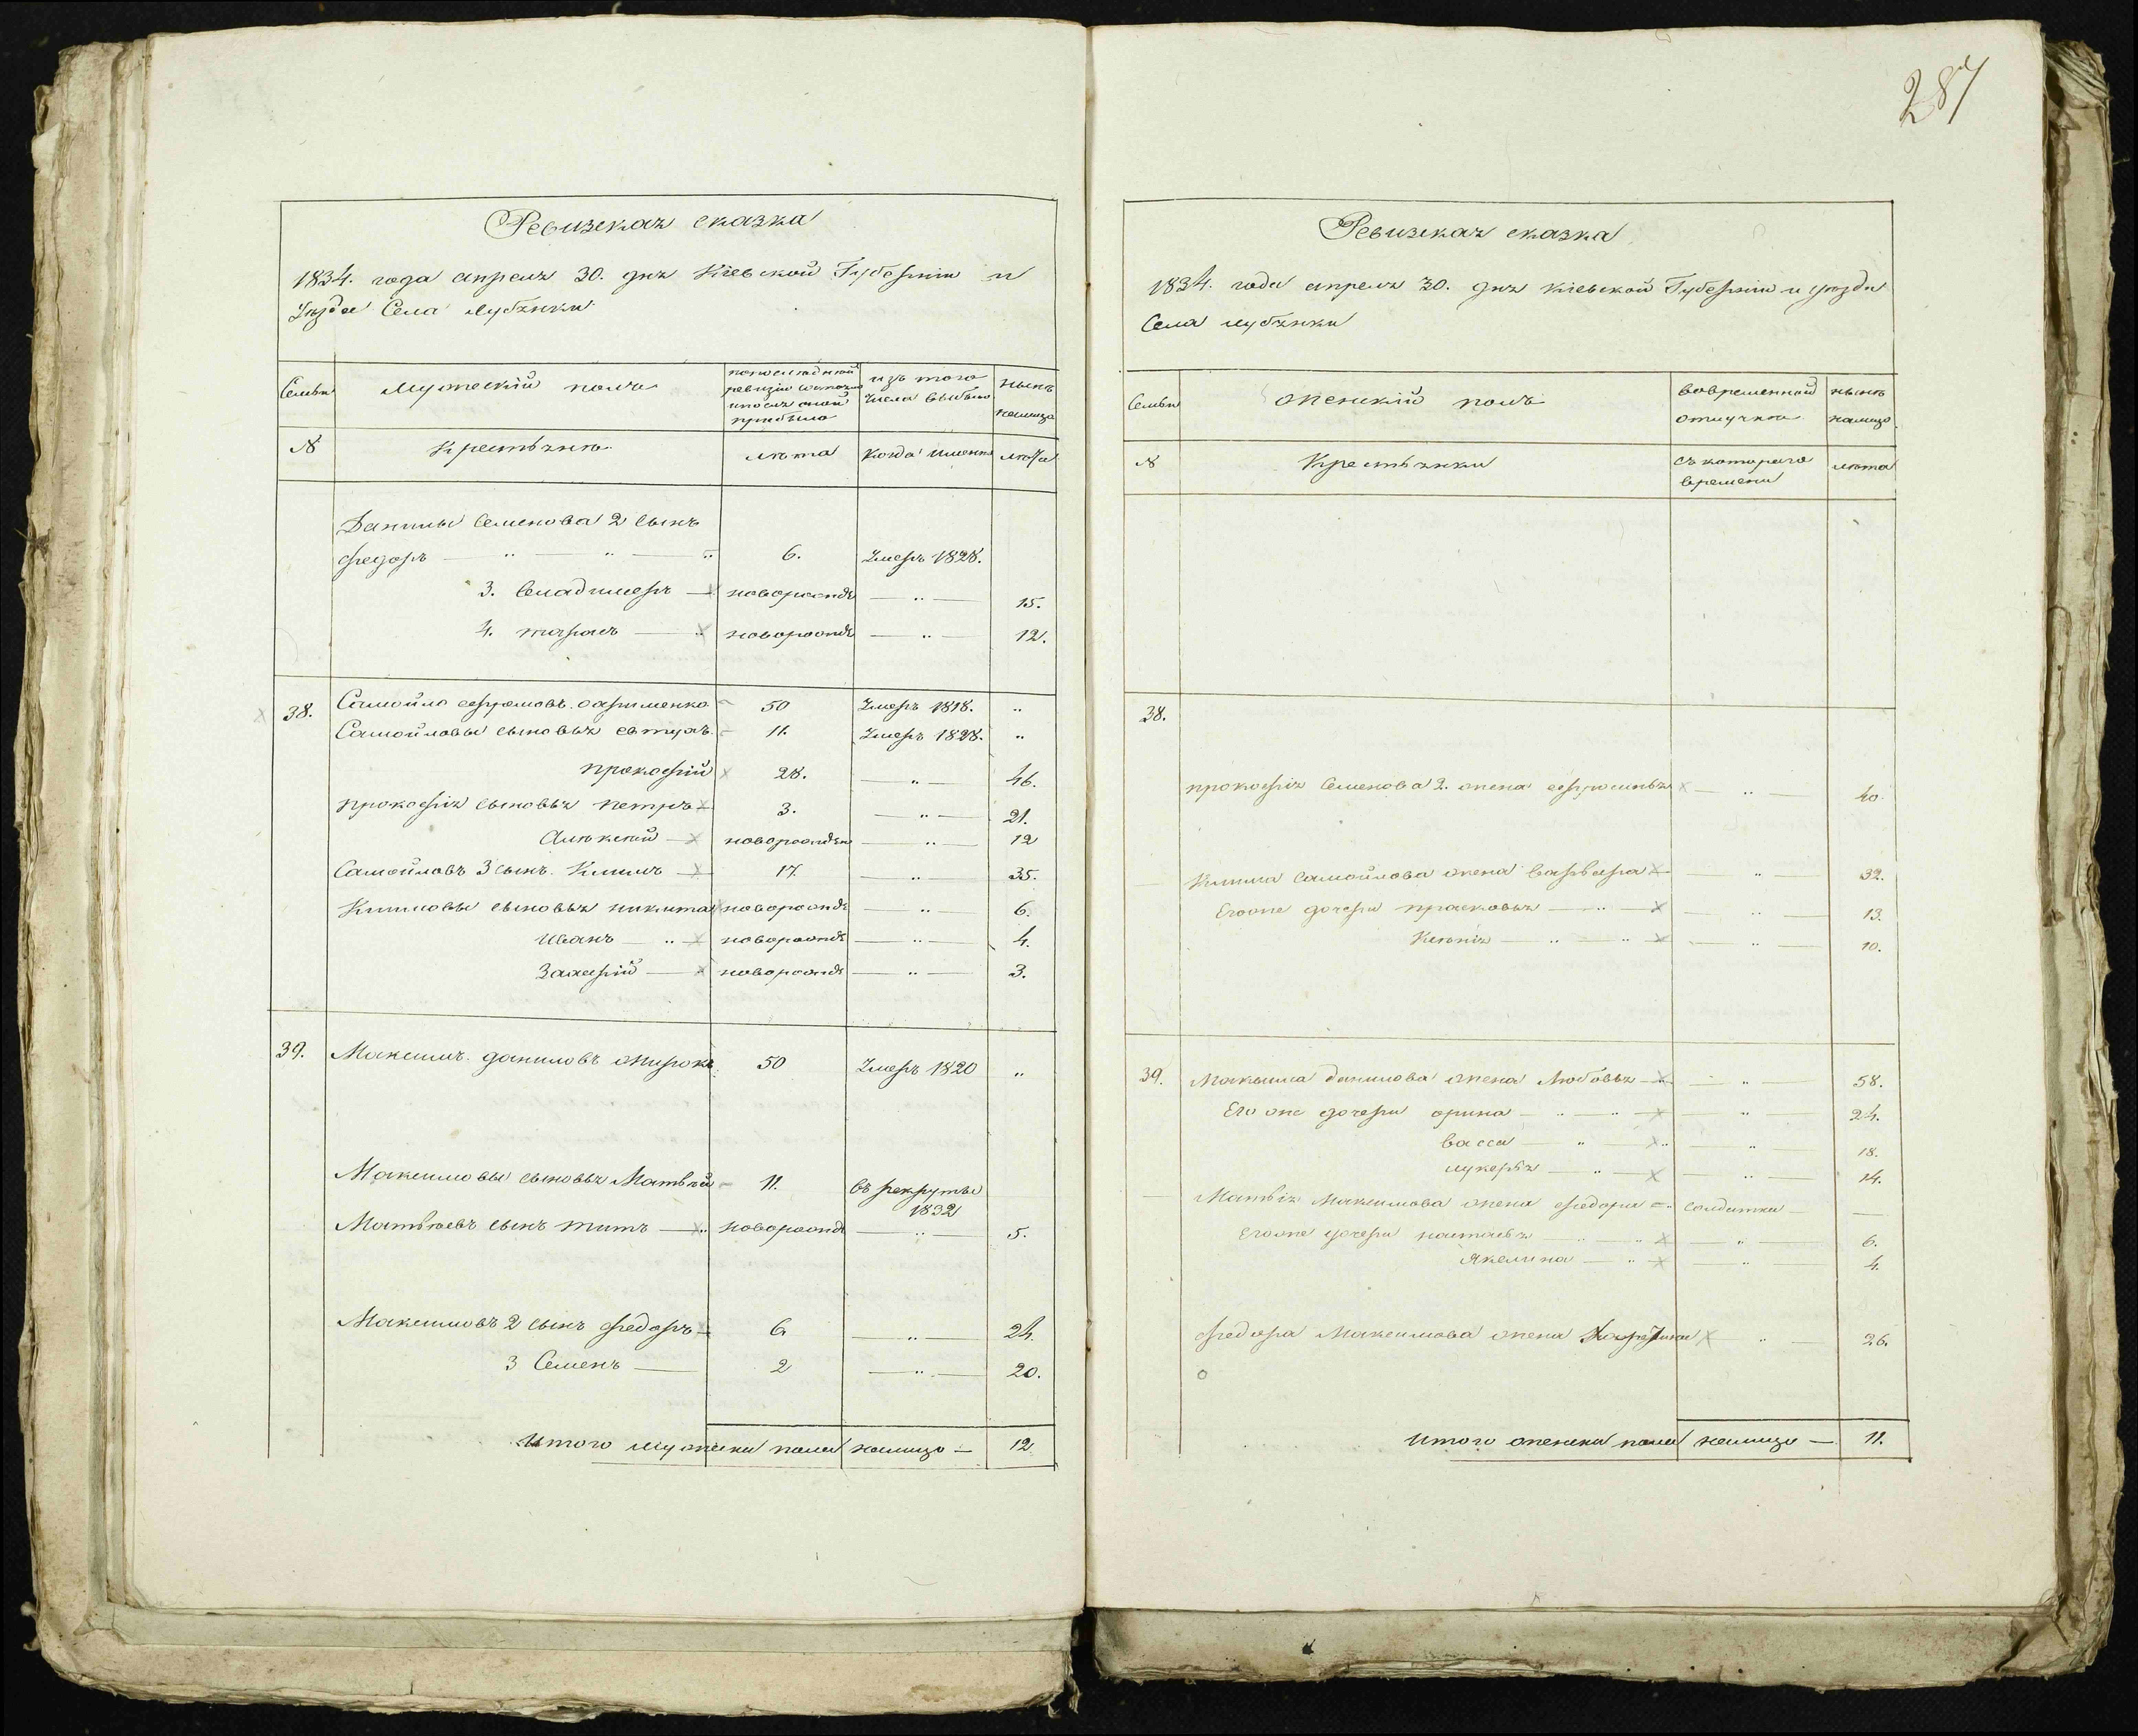 287
Ревизская сказка
1834. года апреля 30. дня Кіевской Губерніи и
Уѣзда Села Лубянки
Семьи
Мужескій полъ
изъ того
числа выбыло
нынѣ
налицо
№
Крестьяне
лѣта
Когда именно
лѣта
Данилы Семенова 2 сынъ
Федоръ 6. Умеръ 1828.
3. Владимеръ новорожд 15.
4. новорожд 12.
38. Самойло Умеръ 1818.
50
Самойловы сыновья 11. Умеръ 1828.
прокофій 28. 46.
прокофія сыновья петръ 3. 21.
Алѣксей новорожден 12
Самойловъ 3 сынъ Климъ 17. 35.
Климовы сыновья никита новорожд 6.
иванъ новорожд 4.
Захарій новорожд 3.
39. Максимъ даниловъ 50 Умеръ 1820
Максимовы сыновья Матвѣй 11. въ рекруты
1832
Матвѣевъ сынъ титъ новорожд 5.
Максимовъ 2 сынъ Федоръ 6 24.
3 Семенъ 2 20.
Итого мужеска пола налицо — 12.
Ревизская сказка
1834. года апреля 30. дня Кіевской Губерніи и уѣзда
Села лубянки
Семьи
женскій полъ
вовременной
отлучке
нынѣ
налицо
№
Крестьянки
съ котораго
времени
лѣта
38.
прокофія Семенова 2. жена 40.
Клима Самойлова жена варвара 32.
Егоже дочери прасковья 13.
Ксенія 10.
39. Максима Данилова жена Любовья 58.
Его же дочери орина 24.
васса 18.
лукерья 14.
Матвія Максимова жена федора солдатка
Егоже дочери настасья 6.
Якелина 4.
Федора Максимова жена 26.
Итого женска пола налицо — 11.